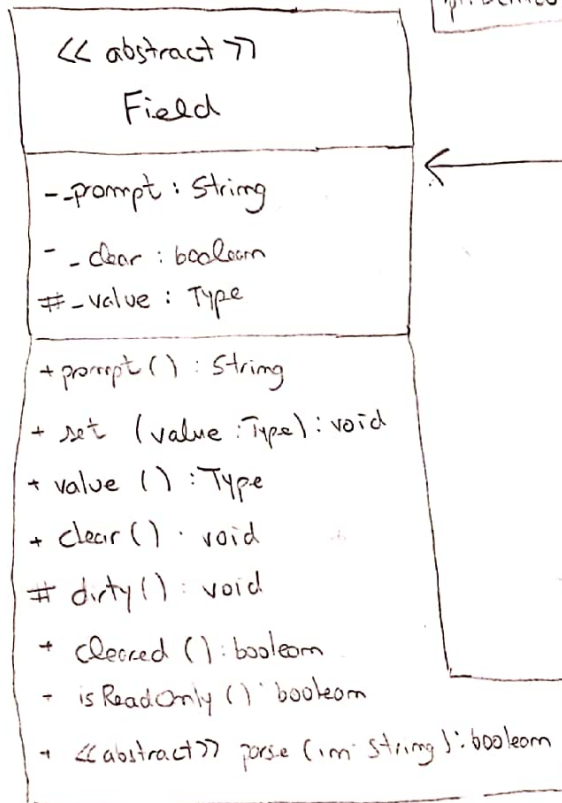 << abstract >>
Field
- _prompt : String
- _clear : boolean
# _value : Type
+ prompt () : String
+ set (value : Type) : void
+ value () : Type
+ clear () : void
# dirty () : void
+ cleared () : boolean
+ isReadOnly () : boolean
+ <<abstract>> parse (in : String) : boolean